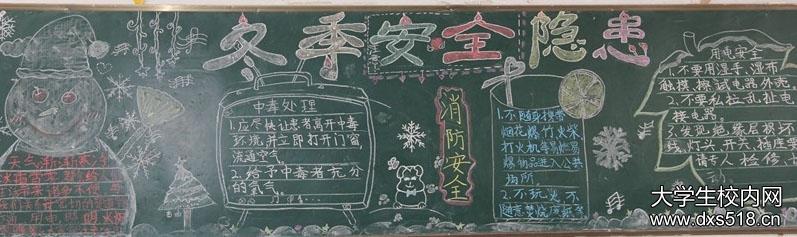 冬季安全隐患
中毒处理
1.应尽快让患者离开中毒
环境并立即打开门窗
流通空气
2.给予中毒者充分
的氧气。
消防安全
1.不随身携带
烟花爆竹火柴
打火机等易燃易
爆物品进入公共
场所
2.不玩火不
随意焚烧废纸等
用电安全
1.不要用湿手、湿布
触摸、擦试电器外壳。
2.不要私拉乱扯电
接电器。
3.发现绝缘层损坏
线、灯头、开关、插座要
请专人检修
大学生校内网
www.dxs518.cn